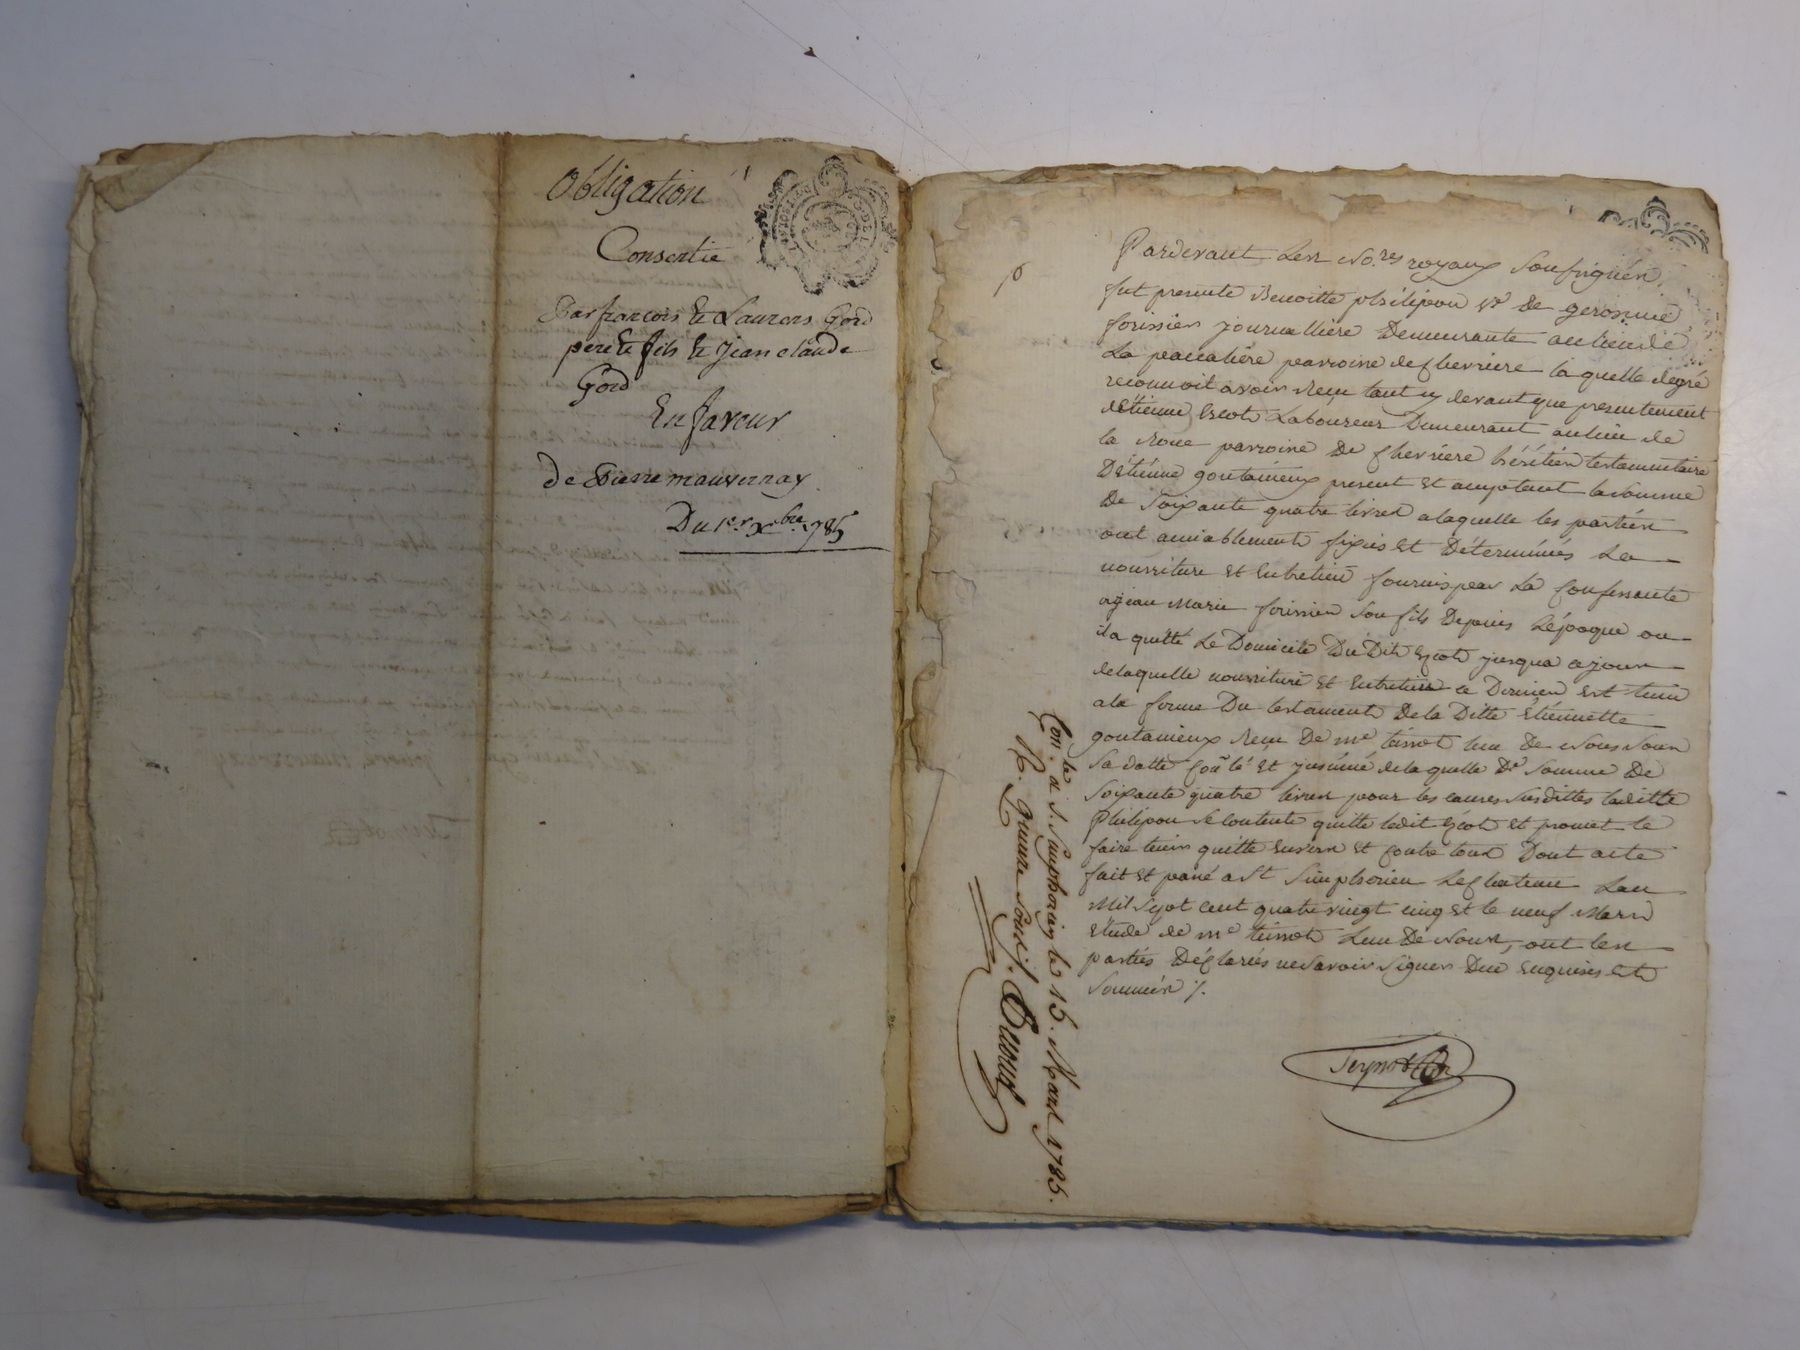 Obligation
Consentie
Par francois Et Laurens Gord
pere Et fils Et Jean claude
Gord
En faveur
de Pierre mauvernay
Du 1er Xbre 1785
Pardevant Les No.res royaux Soussignés
fut presente Benoitte philipon Ve De gerosme
forissier journalliere Demeurante au lieu de
La parroisse de chevriere laquelle de gré
reconnoit avoir Reçu tant cy devant que presentement
d'Etienne Escot Laboureur Demeurant au lieu de
la Roue parroisse De chevriere héritier testamentaire
D'étienne goutanieux present Et acceptant la somme
De Soixante quatre livres a laquelle les parties
ont amiablement fixés Et Déterminés La
nourriture Et Entretien fournis par La Confessante
a jean Marie forissier Son fils Depuis L'époque ou
il a quitté Le Domicile Du Dit Escot jusqua ce jour
de laquelle nourriture Et Entretien ce Dernier Est tenu
a la forme Du testament De la Ditte Etiennette
goutanieux Reçu De me teissot L'un De Nous Soun
Sa datte et de laquelle De Somme De
Soixante quatre livres pour les causes Susdittes laditte
Philipon Se Contente quitte ledit Escot Et promet le
faire tenir quitte Envers Et contre tous Dont acte
fait Et passé a St Simphorien Le Chateau L'an
Mil Sept cent quatre vingt cinq Et le neuf Mars
Etude de me teissot L'un De Nous, ont les
parties Déclarés ne Savoir Signer De ce Enquises Et
Sommées /.
Con.lé a S. Simphorien le 15. Mars 1785.
R. quinze sous /.